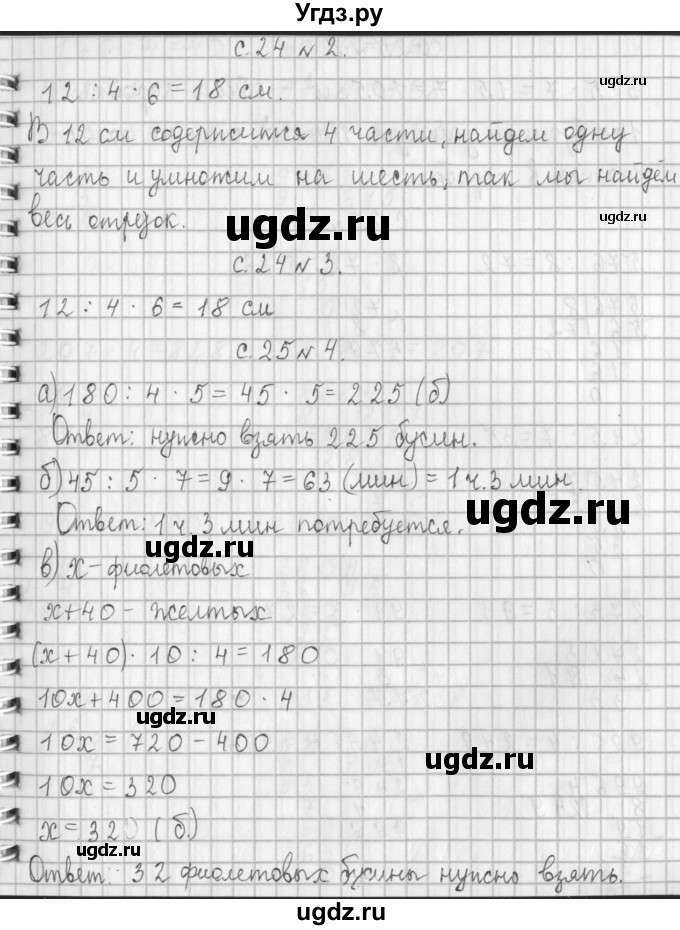 Угдз.ру
с. 24 № 2.
ugdz.ru
12 : 4 · 6 = 18 см.
В 12 см содержится 4 части, найдем одну
часть и умножим на шесть, так мы найдём
весь отрезок.
ugdz.ru
ugdz.ru
с. 24 № 3.
12 : 4 · 6 = 18 см
с. 25 № 4.
а) 180 : 4 · 5 = 45 · 5 = 225 (б)
Ответ: нужно взять 225 бусин.
б) 45 : 5 · 7 = 9 · 7 = 63 (мин) = 1 ч. 3 мин
Ответ: 1 ч. 3 мин потребуется.
ugdz.ru
ugdz.ru
в) х - фиолетовых
х + 40 - желтых
(х + 40) · 10 : 4 = 180
10х + 400 = 180 · 4
ugdz.ru
10х = 720 - 400
ugdz.ru
10х = 320
х = 32 (б.)
ugdz.ru
Ответ: 32 фиолетовых бусины нужно взять.
ugdz.ru